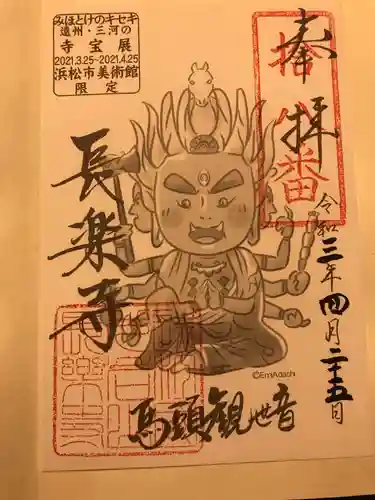 みほとけのキセキ
遠州・三河の
寺宝展
2021.3.25~2021.4.25
浜松市美術館
限定
奉拝
拾八番
令和三年四月二十五日
長楽寺
馬頭観世音
©EmiAdachi